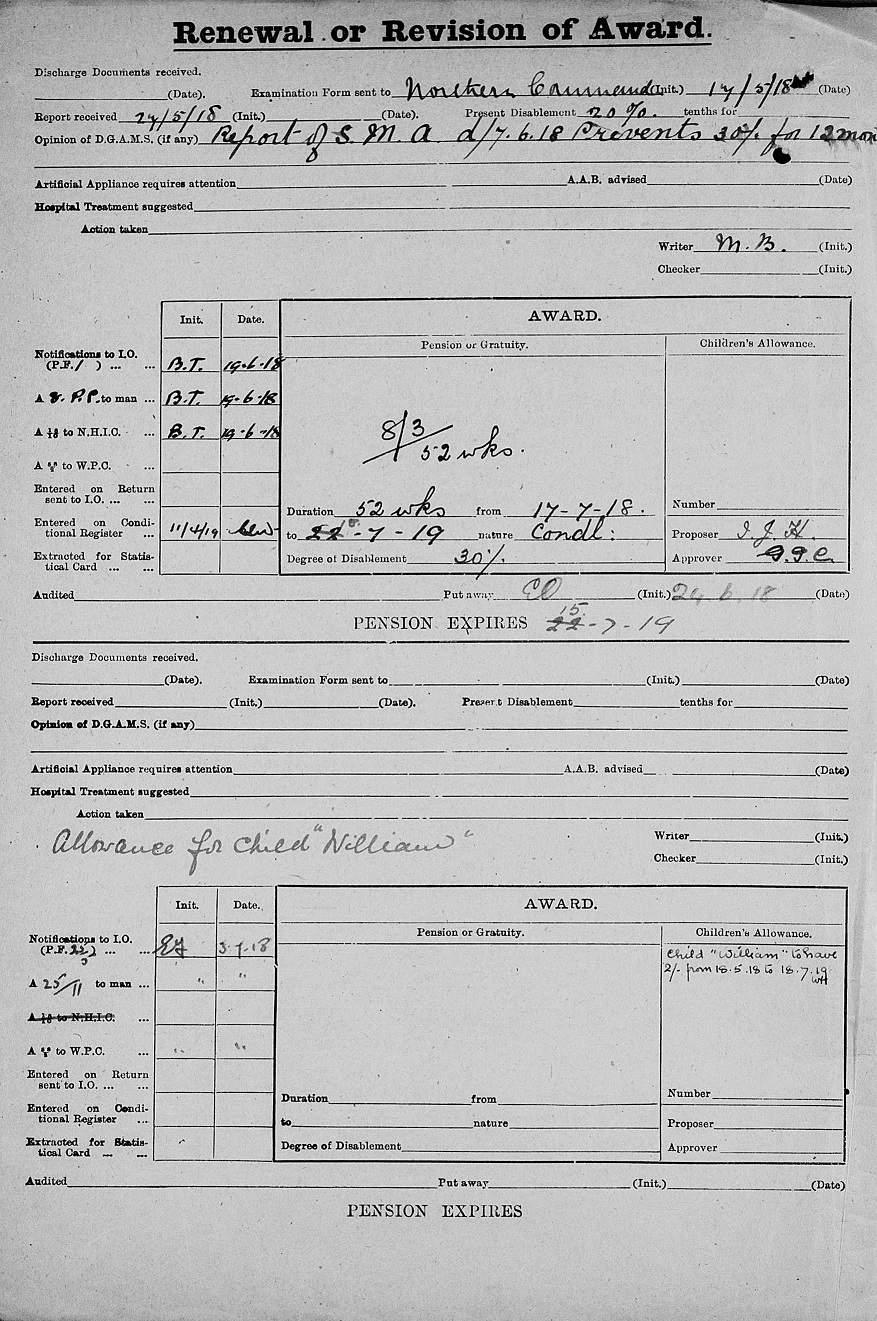 Renewal or Revision of Award.
Discharge Documents received.
(Date). Examination Form sent to Northern Command (Init.) 17/5/18 (Date)
Report received 24/5/18 (Init.) (Date). Present Disablement 20%. tenths for
Opinion of D.G.A.M.S. (if any) Report of S. M. A. d/7.6.18 Prevents 30% for 12 mon
Artificial Appliance requires attention A.A.B. advised (Date)
Hospital Treatment suggested
Action taken
Writer M. B. (Init.)
Checker (Init.)
Init. Date. AWARD.
Pension or Gratuity. Children's Allowance.
Notifications to I.O.
(P.F. / ) ... ... B.T. 19-6-18
A to man ... B.T. 19-6-18
A to N.H.I.C. ... B.T. 19-6-18
8/3
52 wks.
A to W.P.C. ...
Entered on Return
sent to I.O. ... ...
Duration 52 wks from 17-7-18. Number
Entered on Condi-
tional Register ... 11/4/19
to 22 15-7-19 nature Condl: Proposer I. J. H.
Extracted for Statis-
tical Card ... ...
Degree of Disablement 30% Approver
Audited Put away (Init.) 24.6.18 (Date)
PENSION EXPIRES 22 15.-7-19
Discharge Documents received.
(Date). Examination Form sent to (Init.) (Date)
Report received (Init.) (Date). Present Disablement tenths for
Opinion of D.G.A.M.S. (if any)
Artificial Appliance requires attention A.A.B. advised (Date)
Hospital Treatment suggested
Action taken
Allowance for child "William"
Writer (Init.)
Checker (Init.)
Init. Date. AWARD.
Pension or Gratuity. Children's Allowance.
Notifications to I.O.
(P.F. ) ... ... 3.7.18
Child "William" to have
2/- from 18.5.18 to 18.7.19
A 25/11 to man ... " "
A to N.H.I.C. ...
A to W.P.C. ... " "
Entered on Return
sent to I.O. ... ...
Number
Duration from
Entered on Condi-
tional Register ...
to nature Proposer
Extracted for Statis-
tical Card ... ...
Degree of Disablement Approver
Audited Put away (Init.) (Date)
PENSION EXPIRES